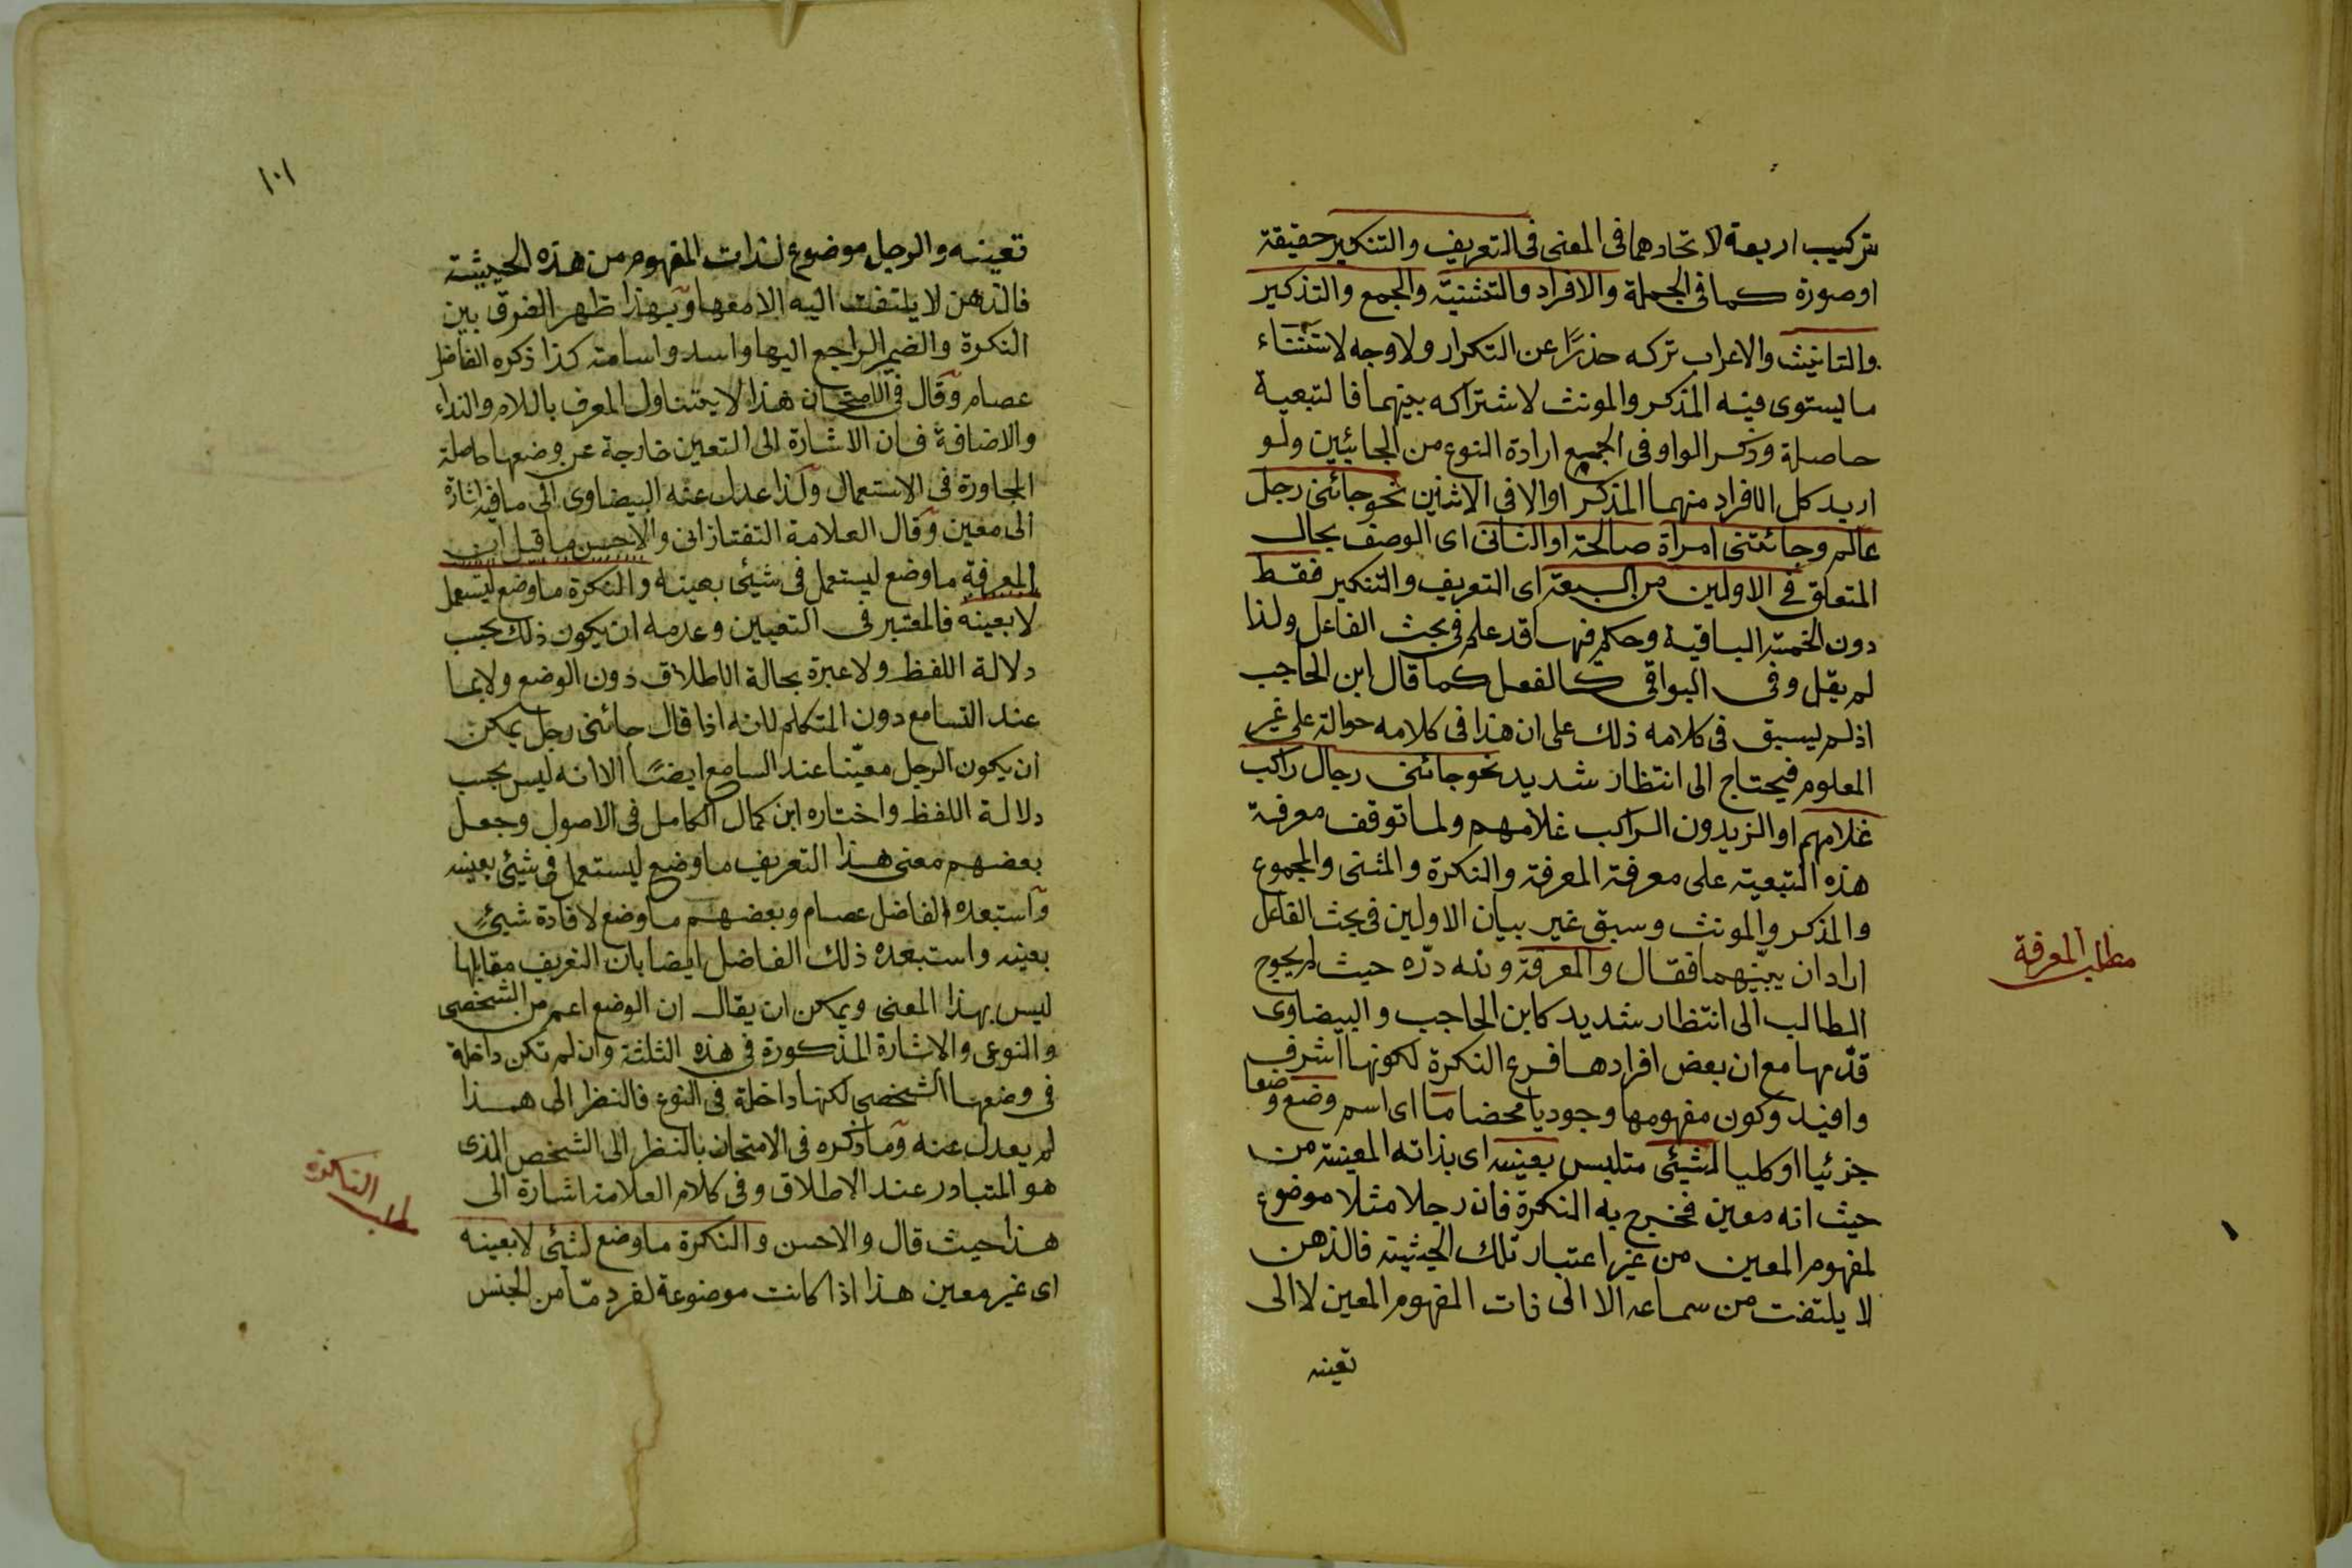 تركيب اربعة لاتحادهما فى المعنى فى التعريف والتنكير حقيقة
او صورة كما فى الجملة والافراد والتثنية والجمع والتذكير
والتانيث والاعراب تركه حذرًا عن التكرار ولا وجه لاستثناء
ما يستوى فيه المذكر والمونث لاشتراكه بينهما فالتبعية
حاصلة وذكر الواو فى الجميع ارادة النوع من الجائيين ولو
اريد كل الافراد منهما المذكر اوالا فى الاثنين نحو جائنى رجل
عالم وجائتنى امراة صالحة او الثانى اى الوصف بحال
المتعلق فى الاولين من السبعة اى التعريف والتنكير فقط
دون الخمسة الباقية وحكم فيها قد علم فى بحث الفاعل ولذا
لم يقل وفى البواقى كالفعل كما قال ابن الحاجب
اذ لم يسبق فى كلامه ذلك على ان هذا فى كلامه حوالة على غير
المعلوم فيحتاج الى انتظار شديد نحو جائنى رجال راكب
غلامهم او الزيدون الراكب غلامهم ولما توقف معرفة
هذه التبعية على معرفة المعرفة والنكرة والمثنى والمجموع
والمذكر والمونث وسبق غير بيان الاولين فى بحث الفاعل
اراد ان يبيّنهما فقال والمعرفة ولله درّه حيث لم يحوج
الطالب الى انتظار شديد كابن الحاجب والبيضاوى
قدّمها مع ان بعض افرادها فرع النكرة لكونها اشرف
وافيد وكون مفهومها وجوديا محضا ما اى اسم وضع وضعا
جزئيا او كليا لشيئى متلبس بعينه اى بذاته المعينة من
حيث انه معين فخرج به النكرة فان رجلا مثلا موضوع
لمفهوم المعين من غير اعتبار تلك الحيثية فالذهن
لا يلتفت من سماعه الا الى ذات المفهوم المعين لا الى
تعينه
مطلب المعرفة
١٠١
تعينه والرجل موضوع لذات المفهوم من هذه الحيثية
فالذهن لا يلتفت اليه الا معها وبهذا ظهر الفرق بين
النكرة والضمير الراجع اليها واسد واسامة كذا ذكره الفاضل
عصام وقال فى الامتحان هذا لا يتناول المعرف باللام والنداء
والاضافة فان الاشارة الى التعين خارجة عن وضعها حاصلة
المجاورة فى الاستعمال ولذا عدل عنه البيضاوى الى ما فيه اشارة
الى معين وقال العلامة التفتازانى والاحسن ما قيل ان
المعرفة ما وضع ليستعمل فى شيئى بعينه والنكرة ما وضع ليستعمل
لا بعينه فالمعتبر فى التعيين وعدمه ان يكون ذلك بحسب
دلالة اللفظ ولا عبرة بحالة الاطلاق دون الوضع ولا بما
عند السامع دون المتكلم لانه اذا قال جائنى رجل يمكن
ان يكون الرجل معيّنا عند السامع ايضًا الا انه ليس بحسب
دلالة اللفظ واختاره ابن كمال الكامل فى الاصول وجعل
بعضهم معنى هذا التعريف ما وضع ليستعمل فى شيئى بعينه
واستبعده الفاضل عصام وبعضهم ما وضع لافادة شيئى
بعينه واستبعده ذلك الفاضل ايضا بان التعريف مقابلها
ليس بهذا المعنى ويمكن ان يقال ان الوضع اعم من الشخصى
والنوعى والاشارة المذكورة فى هذه الثلثة وان لم تكن داخلة
فى وضعها الشخصى لكنها داخلة فى النوع فالنظر الى هذا
لم يعدل عنه وما ذكره فى الامتحان بالنظر الى الشخص الذى
هو المتبادر عند الاطلاق وفى كلام العلامة اشارة الى
هذا حيث قال والاحسن والنكرة ما وضع لشيئى لا بعينه
اى غير معين هذا اذا كانت موضوعة لفرد مّا من الجنس
مطلب النكرة